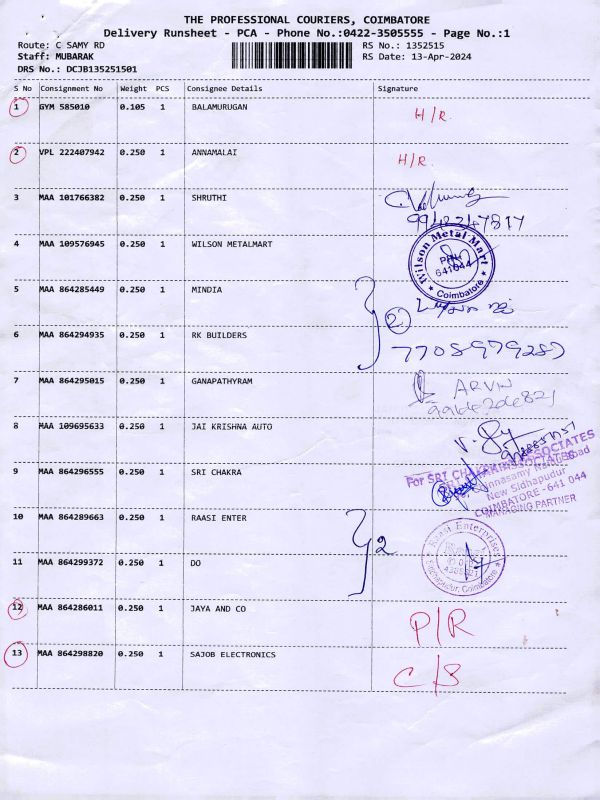 THE PROFESSIONAL COURIERS, COIMBATORE
Delivery Runsheet - PCA - Phone No.:0422-3505555 - Page No.:1
Route: C SAMY RD RS No.: 1352515
Staff: MUBARAK RS Date: 13-Apr-2024
DRS No.: DCJB135251501
S No Consignment No Weight PCS Consignee Details Signature
1 GYM 585010 0.105 1 BALAMURUGAN H/R
2 VPL 222407942 0.250 1 ANNAMALAI H/R
3 MAA 101766382 0.250 1 SHRUTHI
4 MAA 109576945 0.250 1 WILSON METALMART Wilson Metal Mart
641044
Coimbatore
5 MAA 864285449 0.250 1 MINDIA 2
6 MAA 864294935 0.250 1 RK BUILDERS 7708979287
7 MAA 864295015 0.250 1 GANAPATHYRAM ARVIN
8 MAA 109695633 0.250 1 JAI KRISHNA AUTO
9 MAA 864296555 0.250 1 SRI CHAKRA For SRI CHAKRA ASSOCIATES
New Sidhapudur
COIMBATORE - 641 044
MANAGING PARTNER
10 MAA 864289663 0.250 1 RAASI ENTER 2 Raasi Enterprises
11 MAA 864299372 0.250 1 DO Coimbatore
12 MAA 864286011 0.250 1 JAYA AND CO P/R
13 MAA 864298820 0.250 1 SAJOB ELECTRONICS C/S